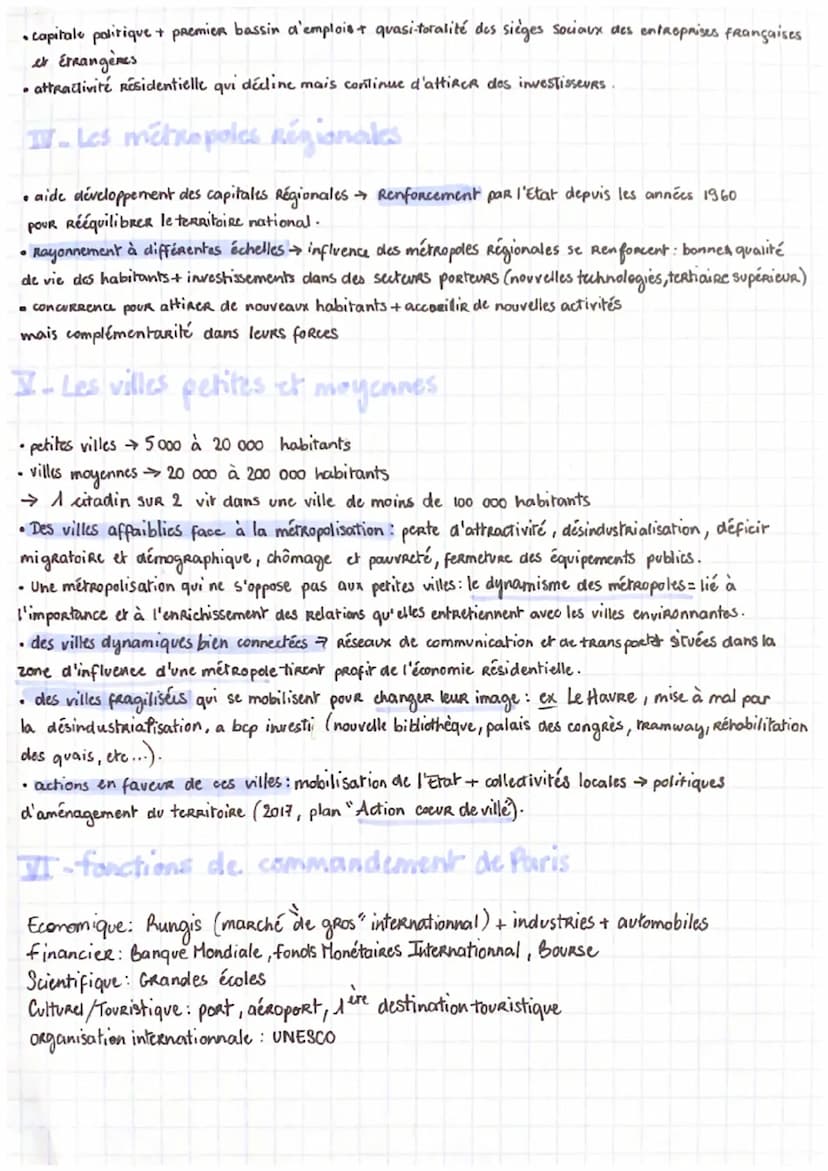 • capitale politique + premier bassin d'emplois + quasi-totalité des sièges sociaux des entreprises françaises
et étrangères
• attractivité résidentielle qui décline mais continue d'attirer des investisseurs.
IV - Les métropoles Régionales
• aide développement des capitales Régionales → Renforcement par l'Etat depuis les années 1960
pour Rééquilibrer le territoire national.
• Rayonnement à différentes échelles → influence des métropoles Régionales se Renforcent : bonnes qualité
de vie des habitants + investissements dans des secteurs porteurs (nouvelles technologies, tertiaire supérieur)
• concurrence pour attirer de nouveaux habitants + accueilir de nouvelles activités
mais complémentarité dans leurs forces
V - Les villes petites et moyennes
• petites villes → 5 000 à 20 000 habitants
• villes moyennes → 20 000 à 200 000 habitants
→ 1 citadin sur 2 vit dans une ville de moins de 100 000 habitants
• Des villes affaiblies face à la métropolisation : perte d'attractivité, désindustrialisation, déficit
migratoire et démographique, chômage et pauvreté, fermeture des équipements publics.
• Une métropolisation qui ne s'oppose pas aux petites villes : le dynamisme des métropoles = lié à
l'importance et à l'enrichissement des Relations qu'elles entretiennent avec les villes environnantes.
• des villes dynamiques bien connectées → Réseaux de communication et de transports situées dans la
zone d'influence d'une métropole tirent profit de l'économie Résidentielle.
• des villes fragilisées qui se mobilisent pour changer leur image : ex Le Havre, mise à mal par
la désindustrialisation, a bcp investi (nouvelle bibliothèque, palais des congrès, tramway, Réhabilitation
des quais, etc...).
• actions en faveur de ces villes : mobilisation de l'Etat + collectivités locales → politiques
d'aménagement du territoire (2017, plan "Action coeur de ville").
VI - fonctions de commandement de Paris
Economique : Rungis (marché "de gros" internationnal) + industries + automobiles
financier : Banque Mondiale, fonds Monétaires Internationnal, Bourse
Scientifique : Grandes écoles
Culturel/Touristique : port, aéroport, 1ère destination touristique
organisation internationnale : UNESCO